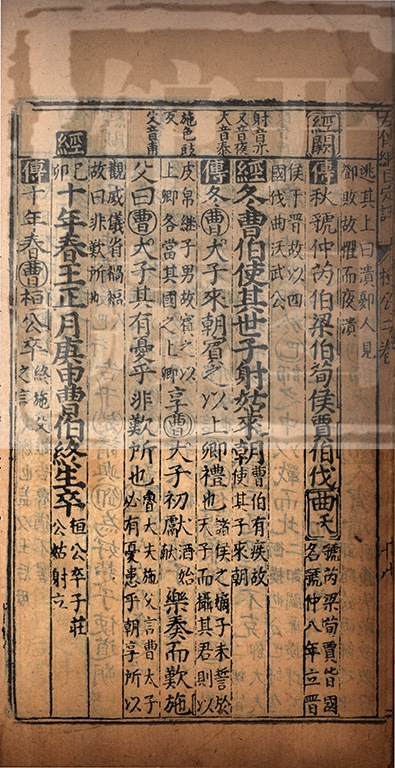 射音亦
又音夜
大音泰
施色豉
父音甫
逃其上曰潰鄖人見
御敗故懼而夜潰
經闕
傳秋虢仲芮伯梁伯荀侯賈伯伐曲沃虢芮梁荀賈皆國
名虢仲八年立晉
侯于晉故以四
國伐曲沃武公
經冬曹伯使其世子射姑來朝曹伯有疾故
使其子來朝
傳冬曹大子來朝賓之以上卿禮也諸侯之嫡子未誓於
天子而攝其君則以
皮帛繼子男故賓之以
上卿各當其國之上卿
享曹大子初獻酒始
獻
樂奏而歎施
父曰曹大子其有憂乎非歎所也魯大夫施父言曹太子
必有憂患乎朝享所以
觀威儀省禍福
故曰非歎所也
經
己卯
十年春王正月庚申曹伯終生卒桓公卒子莊
公姑射立
傳十年春曹桓公卒終施父
之言